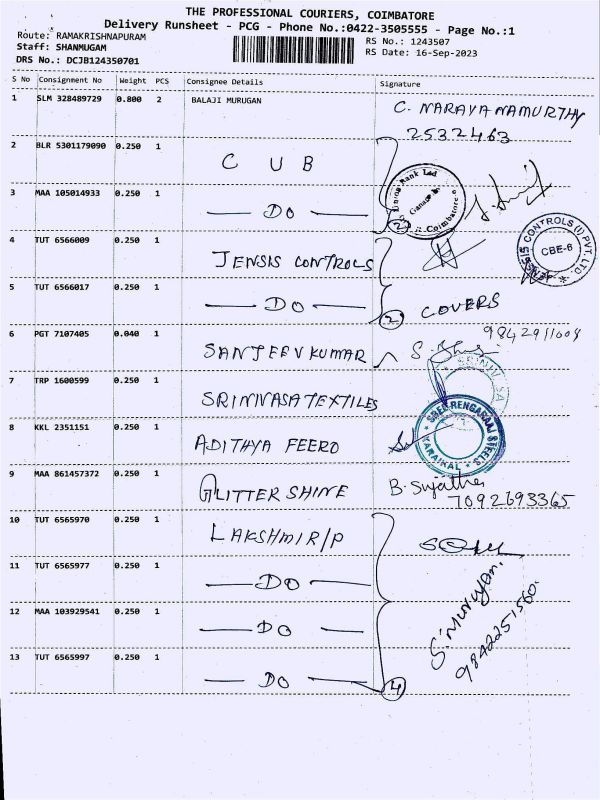 THE PROFESSIONAL COURIERS, COIMBATORE
Delivery Runsheet - PCG - Phone No.:0422-3505555 - Page No.:1
Route: RAMAKRISHNAPURAM
RS No.: 1243507
Staff: SHANMUGAM
RS Date: 16-Sep-2023
DRS No.: DCJB124350701
S No Consignment No Weight PCS Consignee Details Signature
1 SLM 328489729 0.800 2 BALAJI MURUGAN C. NARAYANAMURTHY
2532463
2 BLR 5301179090 0.250 1 C U B
3 MAA 105014933 0.250 1 — DO — 2
4 TUT 6566009 0.250 1 JENSIS CONTROLS
JENSIS CONTROLS (I) PVT. LTD.
CBE-6
5 TUT 6566017 0.250 1 — DO — 2 COVERS
6 PGT 7107405 0.040 1 SANJEEVKUMAR
7 TRP 1600599 0.250 1 SRINIVASA TEXTILES
8 KKL 2351151 0.250 1 ADITHYA FEERO
SREE RENGARAAJ STEELS
KARAIKAL
9 MAA 861457372 0.250 1 GLITTER SHINE B. Sujatha
7092693365
10 TUT 6565970 0.250 1 LAKSHMI R/P
11 TUT 6565977 0.250 1 — DO —
12 MAA 103929541 0.250 1 — DO — S. Murugan.
9842251560.
13 TUT 6565997 0.250 1 — DO — 4